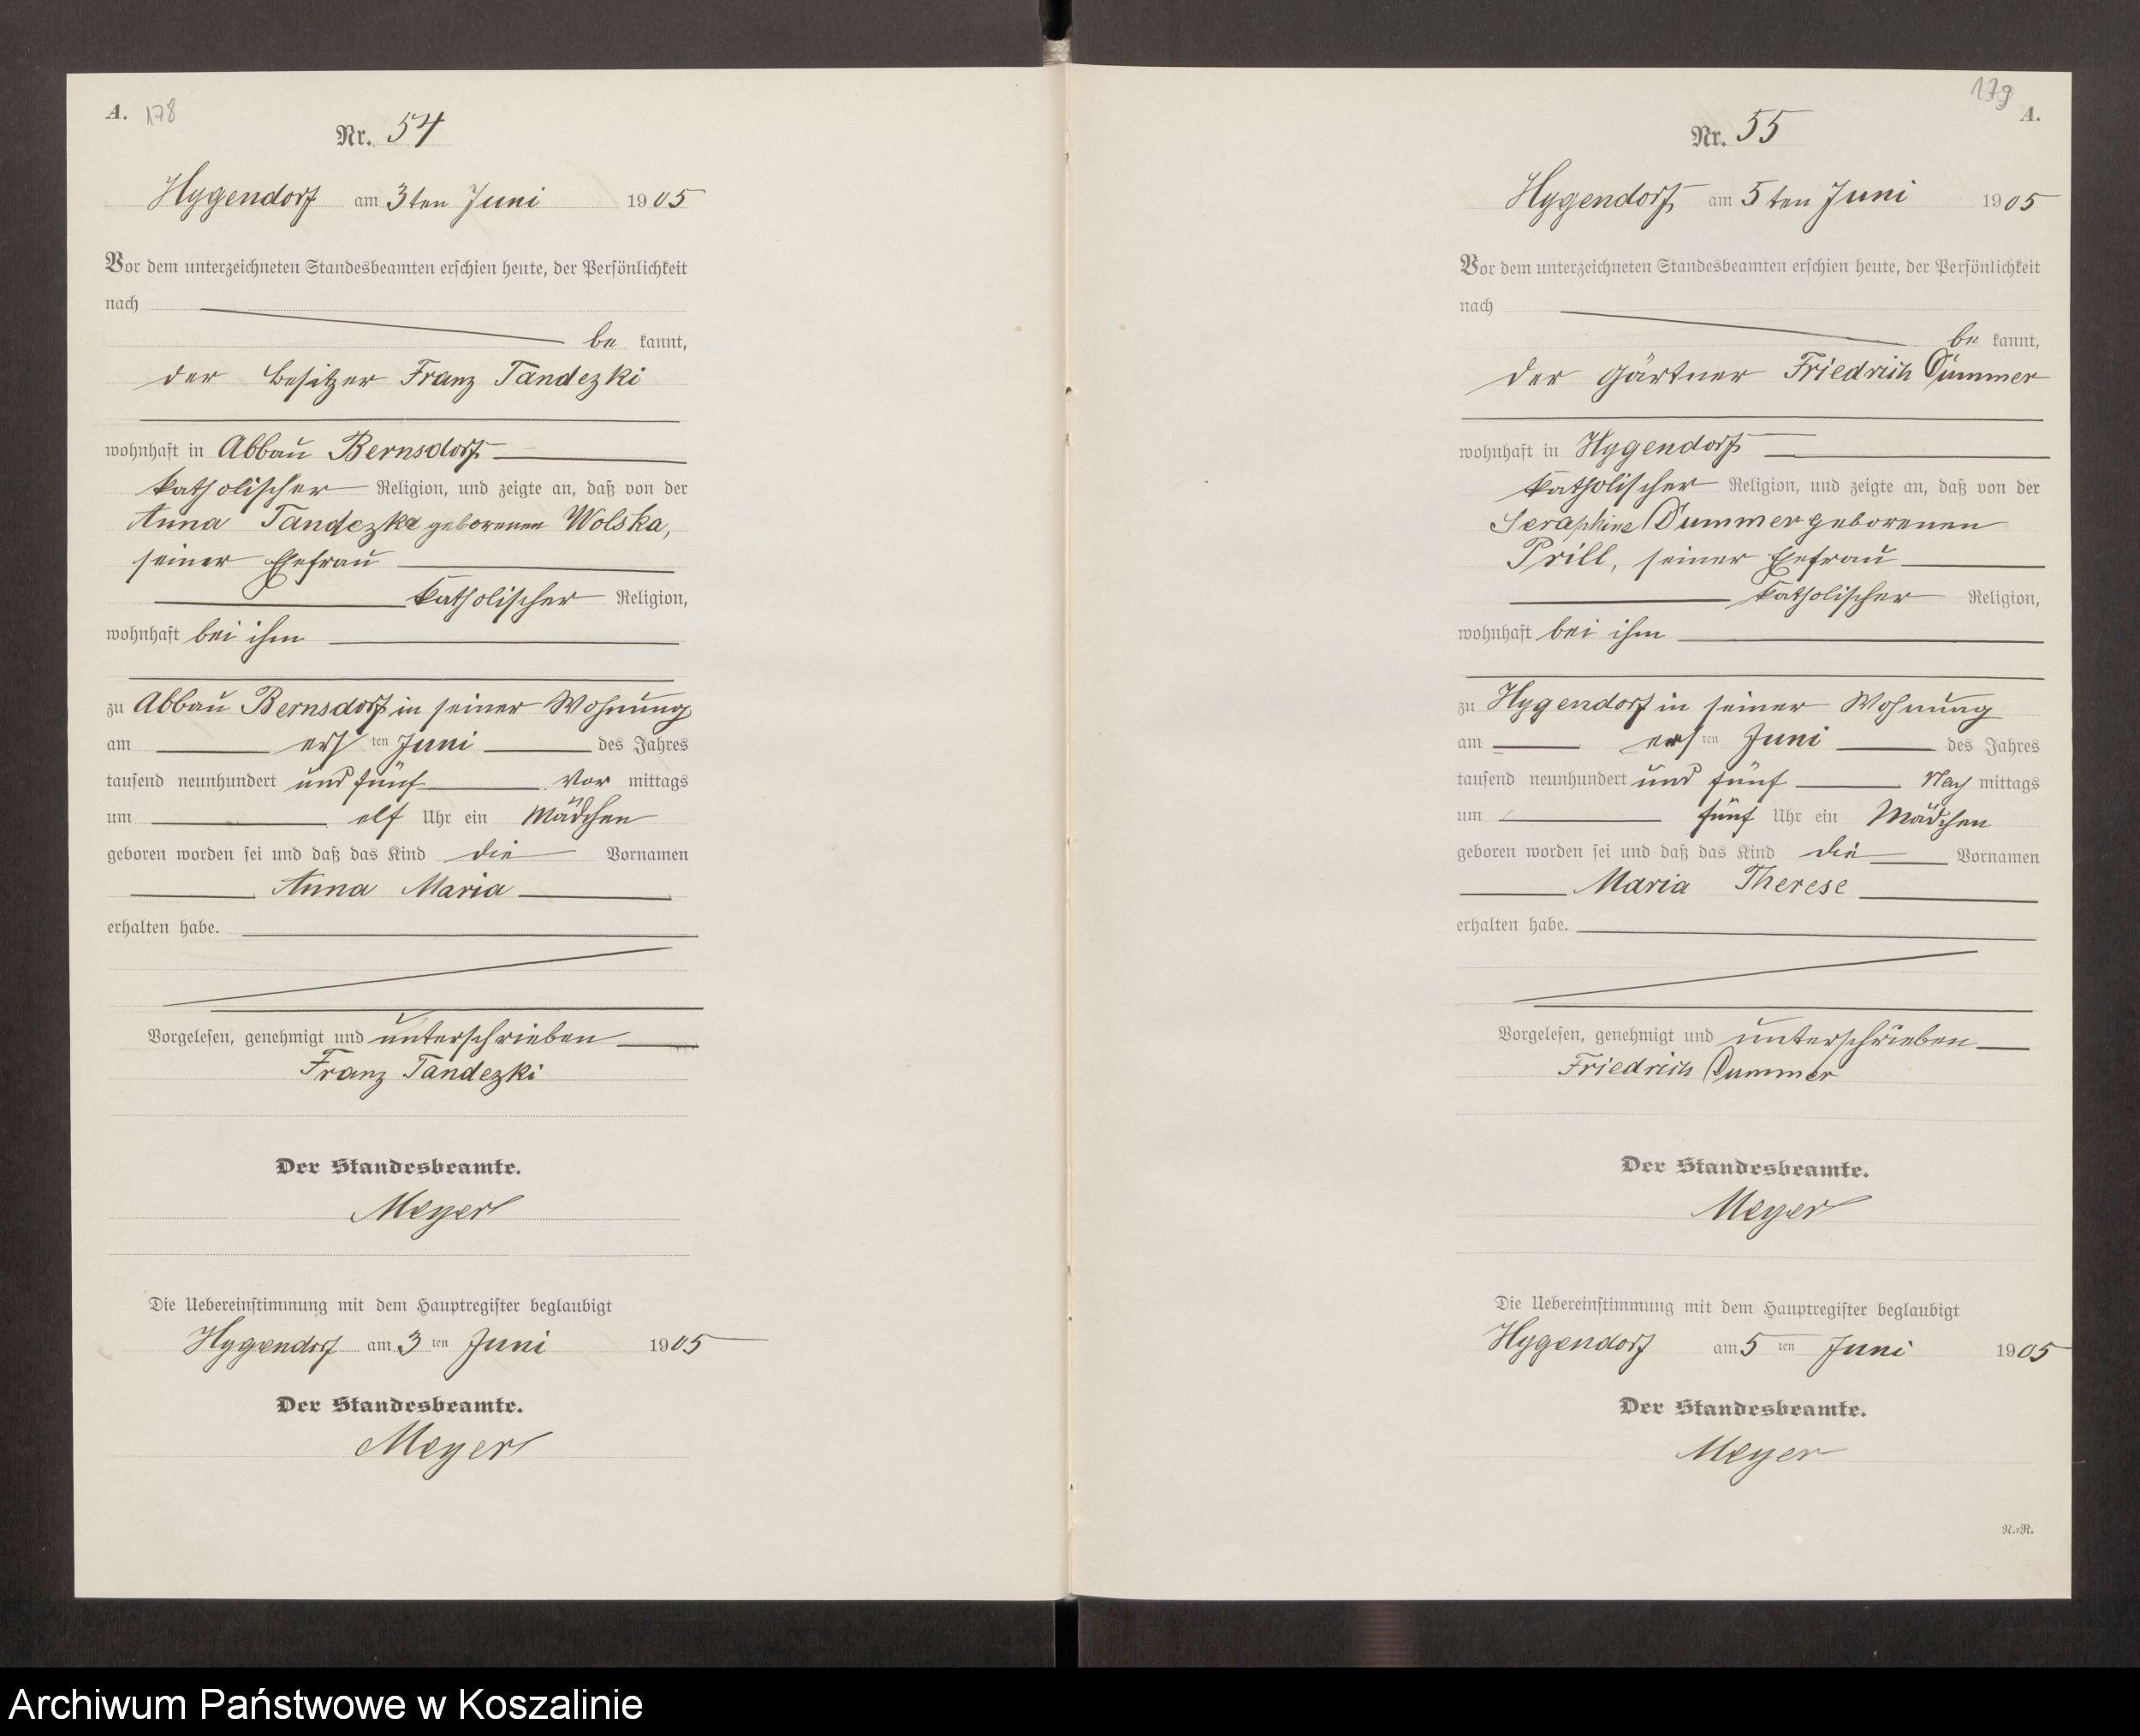 A. 178
Nr. 54
Hygendorf am 3ten Juni 1905
Vor dem unterzeichneten Standesbeamten erschien heute, der Persönlichkeit
nach
be kannt,
der Besitzer Franz Tandezki
wohnhaft in Abbau Bernsdorf
katholischer Religion, und zeigte an, daß von der
Anna Tandezka geborenen Wolska,
seiner Ehefrau
katholischer Religion,
wohnhaft bei ihm
zu Abbau Bernsdorf in seiner Wohnung
am ersten Juni des Jahres
tausend neunhundert und fünf Vor mittags
um elf Uhr ein Mädchen
geboren worden sei und daß das Kind die Vornamen
Anna Maria
erhalten habe.
Vorgelesen, genehmigt und unterschrieben
Franz Tandezki
Der Standesbeamte.
Meyer
Die Uebereinstimmung mit dem Hauptregister beglaubigt
Hygendorf am 3 ten Juni 1905
Der Standesbeamte.
Meyer
179
A.
Nr. 55
Hygendorf am 5ten Juni 1905
Vor dem unterzeichneten Standesbeamten erschien heute, der Persönlichkeit
nach
be kannt,
der Gärtner Friedrich Dummer
wohnhaft in Hygendorf
katholischer Religion, und zeigte an, daß von der
Seraphine Dummer geborenen
Prill, seiner Ehefrau
katholischer Religion,
wohnhaft bei ihm
zu Hygendorf in seiner Wohnung
am ersten Juni des Jahres
tausend neunhundert und fünf Nach mittags
um fünf Uhr ein Mädchen
geboren worden sei und daß das Kind die Vornamen
Maria Therese
erhalten habe.
Vorgelesen, genehmigt und unterschrieben
Friedrich Dummer
Der Standesbeamte.
Meyer
Die Uebereinstimmung mit dem Hauptregister beglaubigt
Hygendorf am 5 ten Juni 1905
Der Standesbeamte.
Meyer
N.=R.
Archiwum Państwowe w Koszalinie